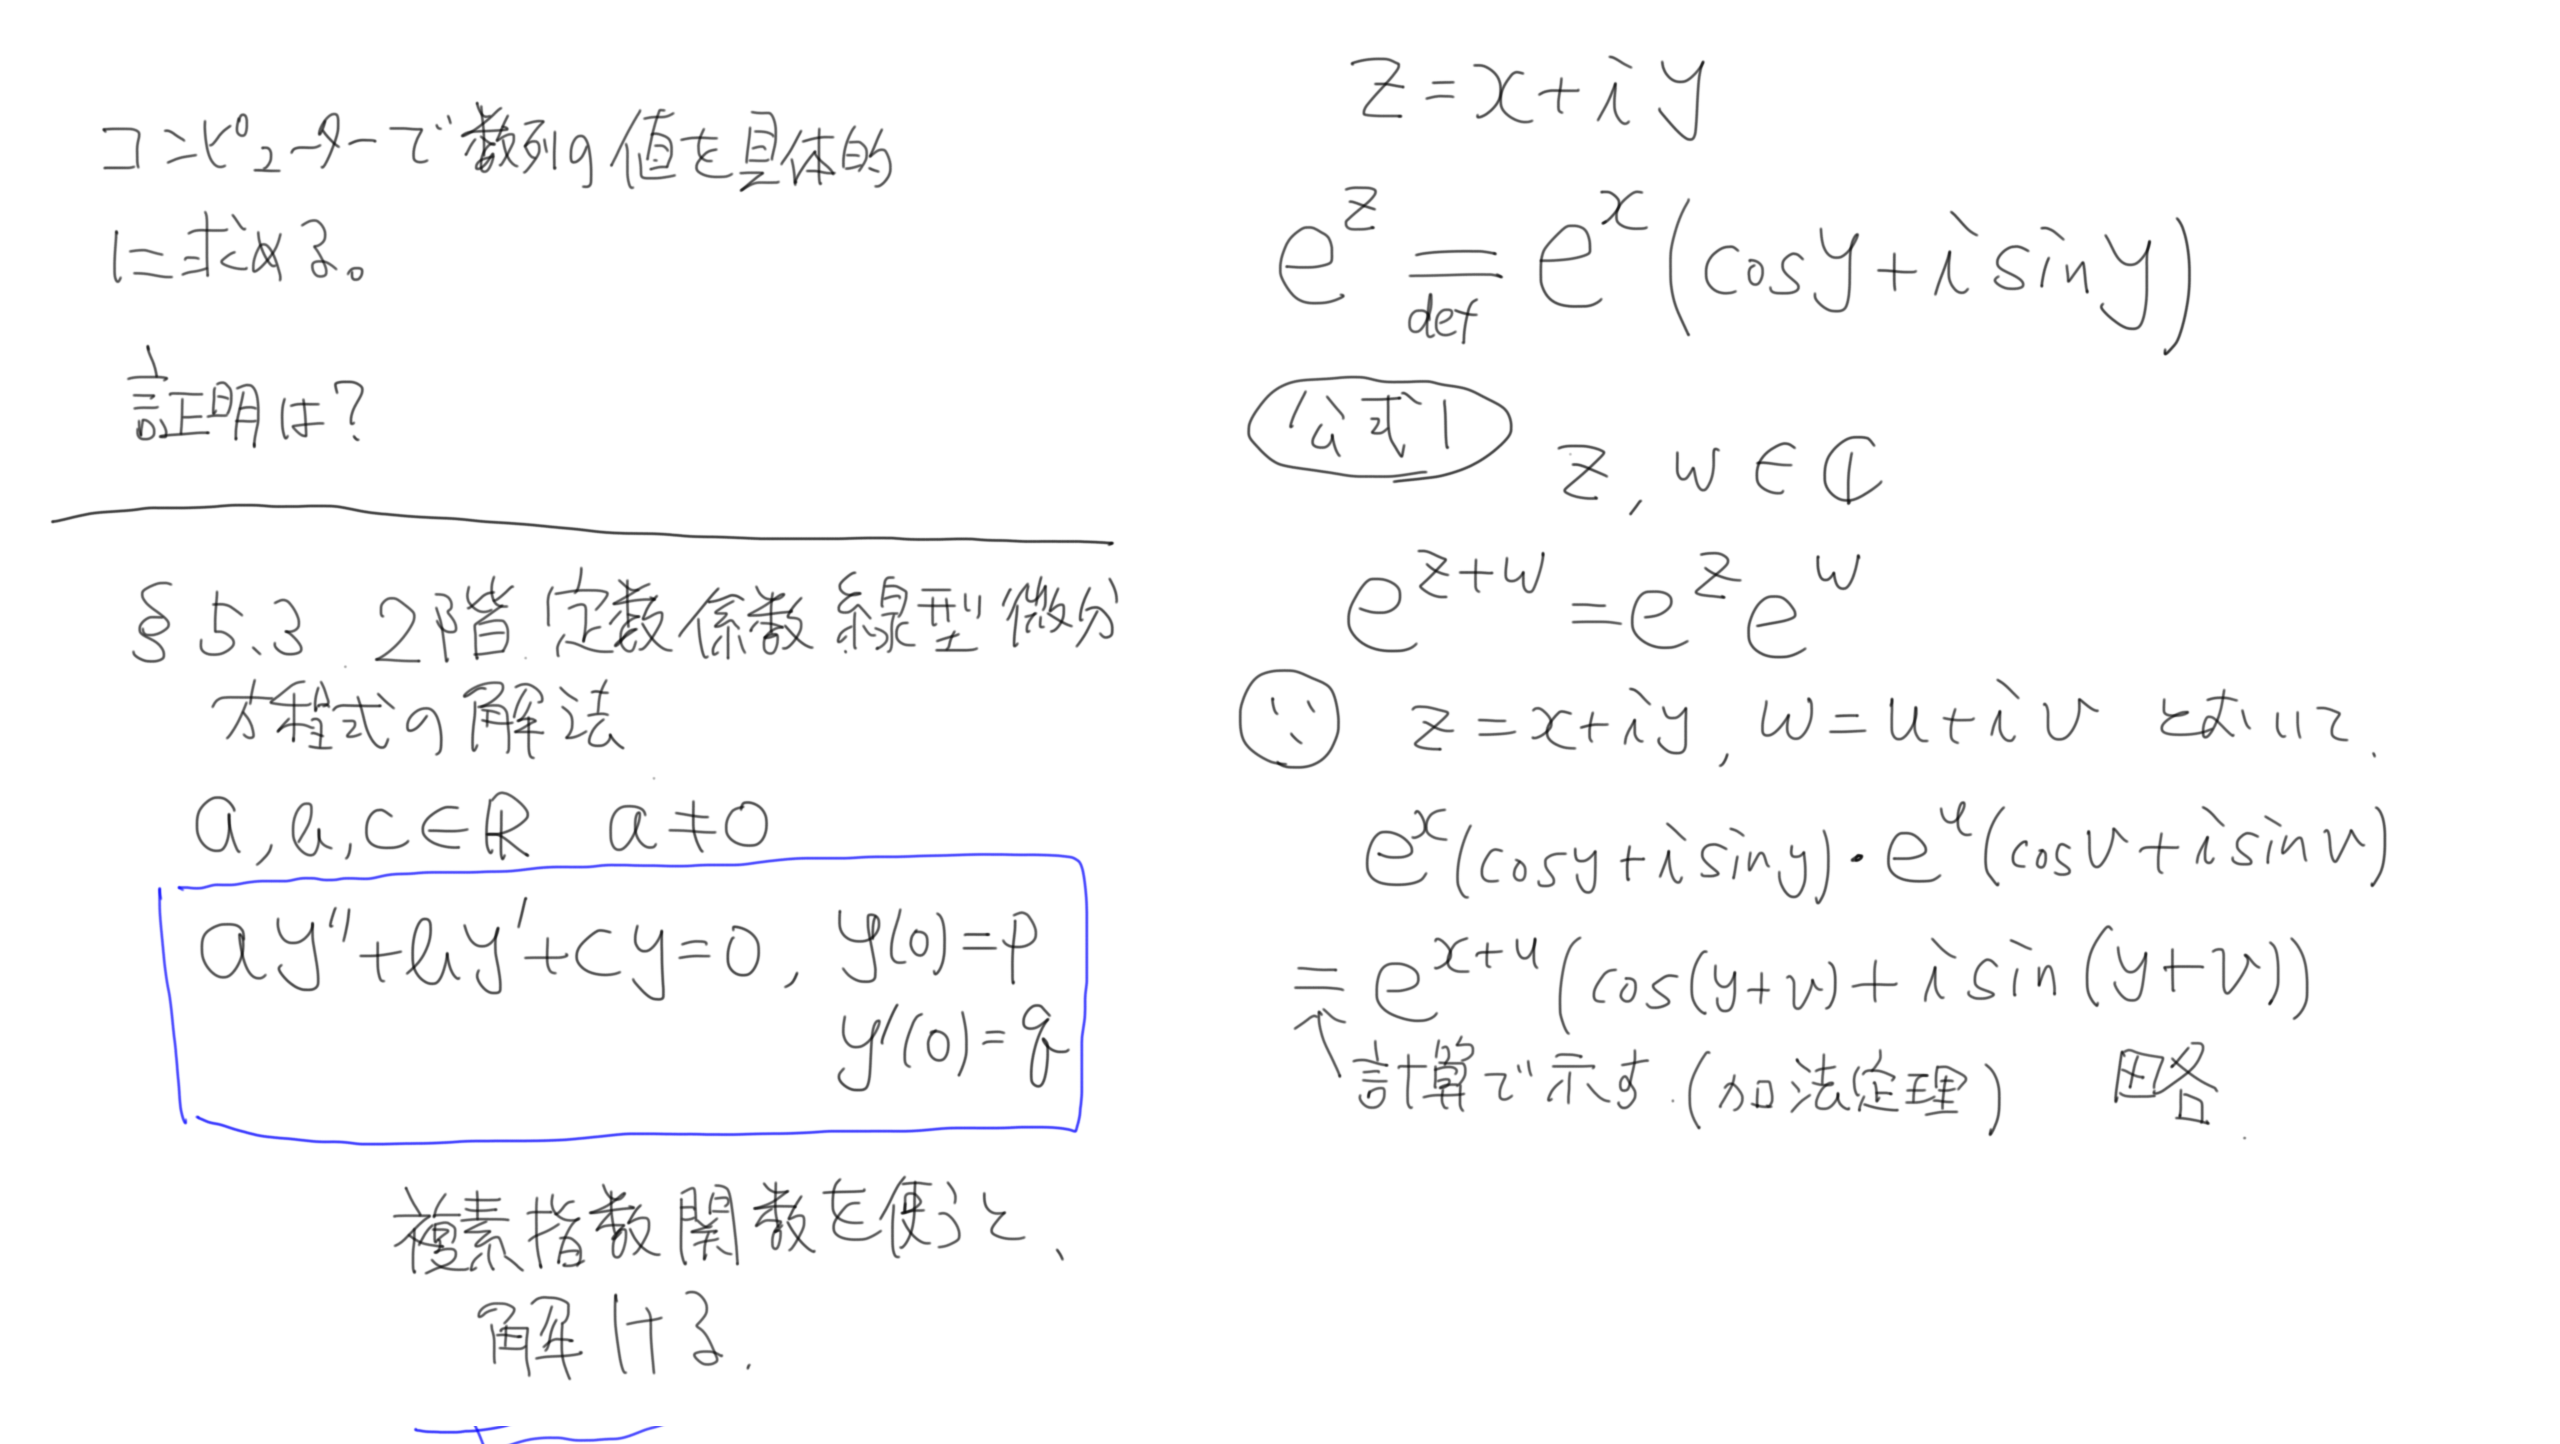 コンピューターで数列の値を具体的
に求める。
証明は?
§5.3. 2階定数係数線型微分
方程式の解法
a, b, c ∈ ℝ a ≠ 0
ay'' + by' + cy = 0, y(0) = p
y'(0) = q
複素指数関数を使うと、
解ける.
z = x + iy
e^z =_def e^x (cos y + i sin y)
公式1
z, w ∈ ℂ
e^{z+w} = e^z e^w
∵ z = x + iy, w = u + iv とおいて.
e^x (cos y + i sin y) · e^u (cos v + i sin v)
= e^{x+u} (cos(y+v) + i sin(y+v))
↑ 計算で示す.(加法定理) 略.